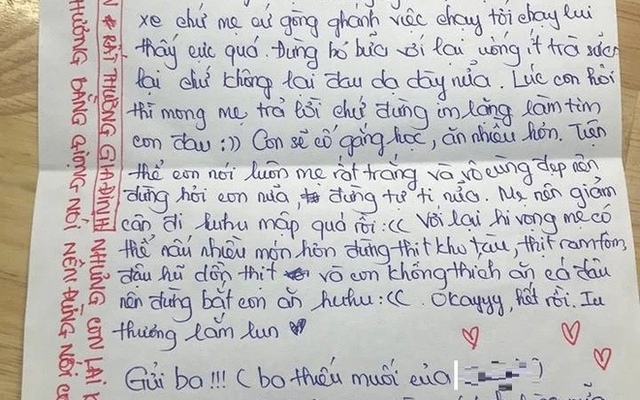 xe chứ mẹ cứ gồng ghánh việc chạy tới chạy lui
thấy cực quá. Đừng bỏ bữa với lại uống ít trà sữa
lại chứ không lại đau dạ dày nữa. Lúc con hỏi
thì mong mẹ trả lời chứ đừng im lặng làm tim
con đau :)) Con sẽ cố gắng học, ăn nhiều hơn. Tiện
thể con nói luôn mẹ rất trắng và vô cùng đẹp nên
đừng hỏi con nữa, đừng tự ti nữa. Mẹ nên giảm
cân đi huhu mập quá rồi :(( Với lại hi vọng mẹ có
thể nấu nhiều món hơn đừng thịt kho tàu, thịt ram tôm,
đậu hũ dồn thịt và con không thích ăn cá đâu
nên đừng bắt con ăn huhu :(( Okayyy, hết rồi. Iu
thương lắm lun
Gửi ba !!! ( ba thiếu muối của )
RẤT THƯƠNG GIA ĐÌNH NHƯNG CON LẠI
THƯƠNG BẰNG GIỌNG NÓI NÊN ĐỪNG NÓI